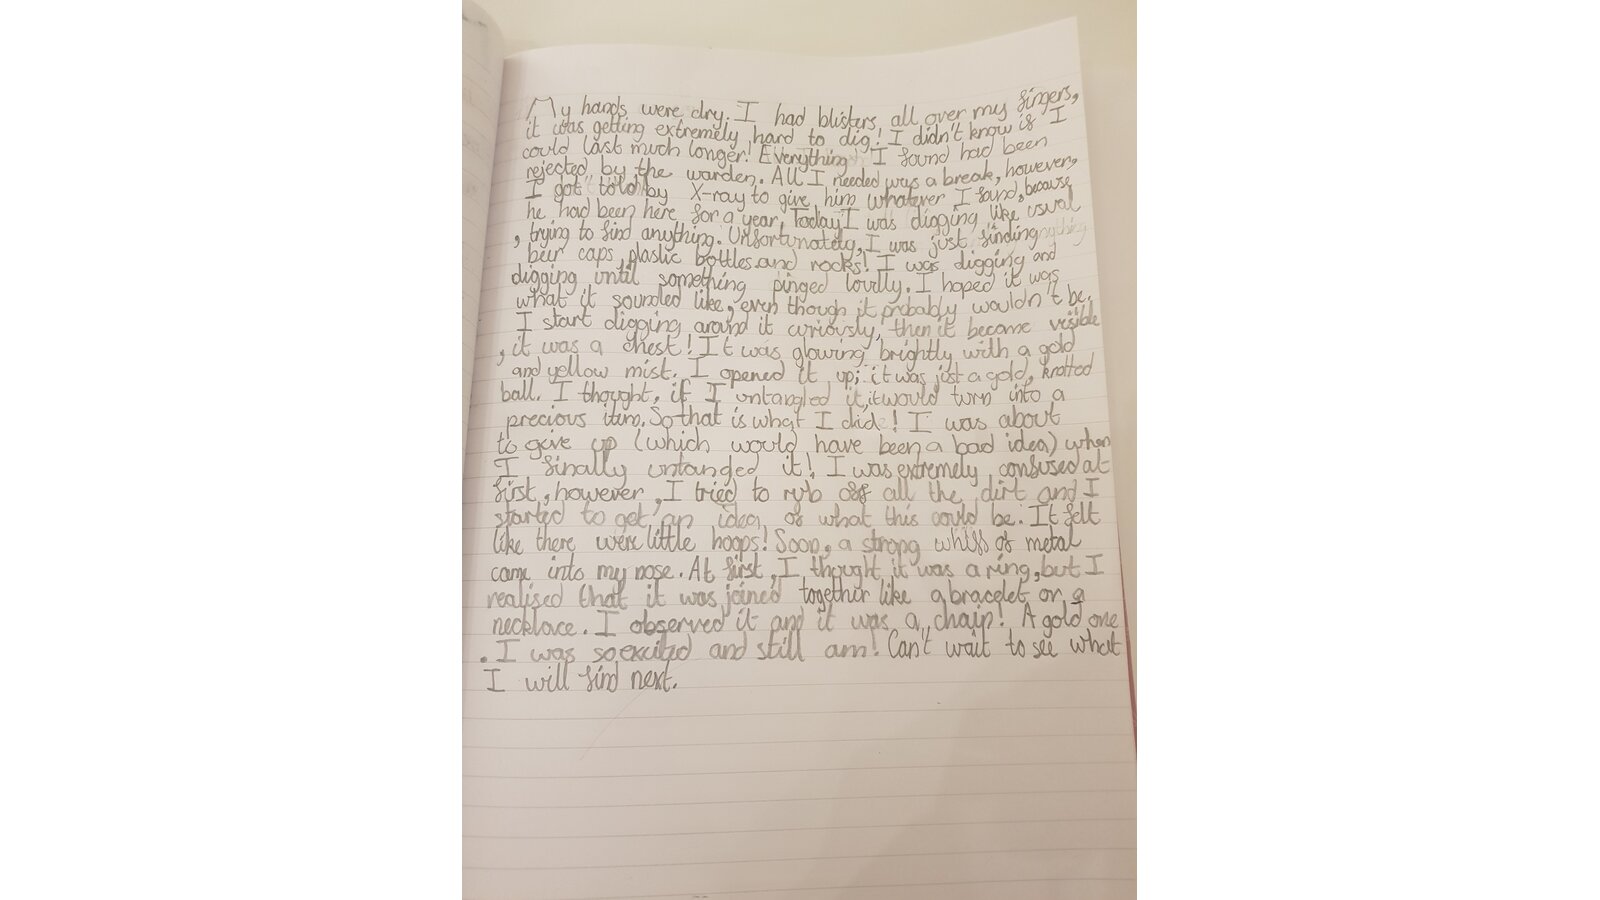 My hands were dry. I had blisters all over my fingers,
it was getting extremely hard to dig! I didn't know if I
could last much longer! Everything I found had been
rejected by the warden. All I needed was a break, however,
I got told by X-ray to give him whatever I found, because
he had been here for a year. Today I was digging like usual
, trying to find anything. Unfortunately, I was just finding
beer caps, plastic bottles and rocks! I was digging and
digging until something pinged loudly. I hoped it was
what it sounded like, even though it probably wouldn't be.
I start digging around it curiously, then it became visible
, it was a chest! It was glowing brightly with a gold
and yellow mist. I opened it up; it was just a gold, knotted
ball. I thought, if I untangled it, it would turn into a
precious item. So that is what I did! I was about
to give up (which would have been a bad idea) when
I finally untanged it! I was extremely confused at
first, however, I tried to rub off all the dirt and I
started to get an idea of what this could be. It felt
like there were little hoops! Soon, a strong whiff of metal
came into my nose. At first, I thought it was a ring, but I
realised that it was joined together like a bracelet or a
necklace. I observed it and it was a chain! A gold one
. I was so excited and still am! Can't wait to see what
I will find next.